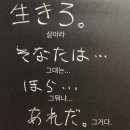 生きろ。
살아라
そなたは…
그대는...
ほら…
그뭐냐...
あれだ。그거다.